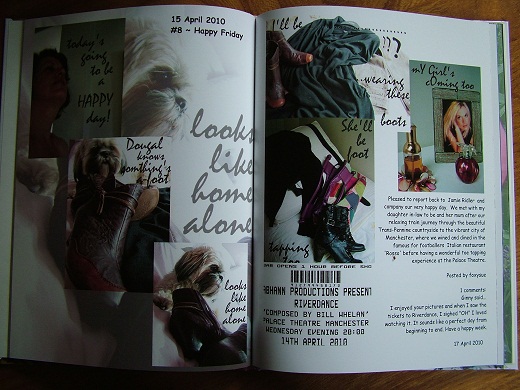 15 April 2010
#8 ~ Happy Friday
today's
going
to be
a
HAPPY
day!
looks
like
home
alone
Dougal
knows
somthing's
foot
looks
like
home
alone
I'll be
...wearing
these
boots
She'll
be
foot
tapping
too
mY Girl's
cOming too
BAR OPENS 1 HOUR BEFORE SHO
ABHANN PRODUCTIONS PRESENT
RIVERDANCE
'COMPOSED BY BILL WHELAN'
PALACE THEATRE MANCHESTER
WEDNESDAY EVENING 20:00
14TH APRIL 2010
Pleased to report back to Jamie Ridler and
company our very happy day. We met with my
daughter in-law to be and her mum after our
relaxing train journey through the beautiful
Trans-Pennine countryside to the vibrant city of
Manchester, where we wined and dined in the
famous for footballers Italian restaurant
'Rosso' before having a wonderful toe tapping
experience at the Palace Theatre.
Posted by foxysue
1 comments:
Ginny said...
I enjoyed your pictures and when I saw the
tickets to Riverdance, I sighed "OH" I loved
watching it. It sounds like a perfect day from
beginning to end. Have a happy week.
17 April 2010